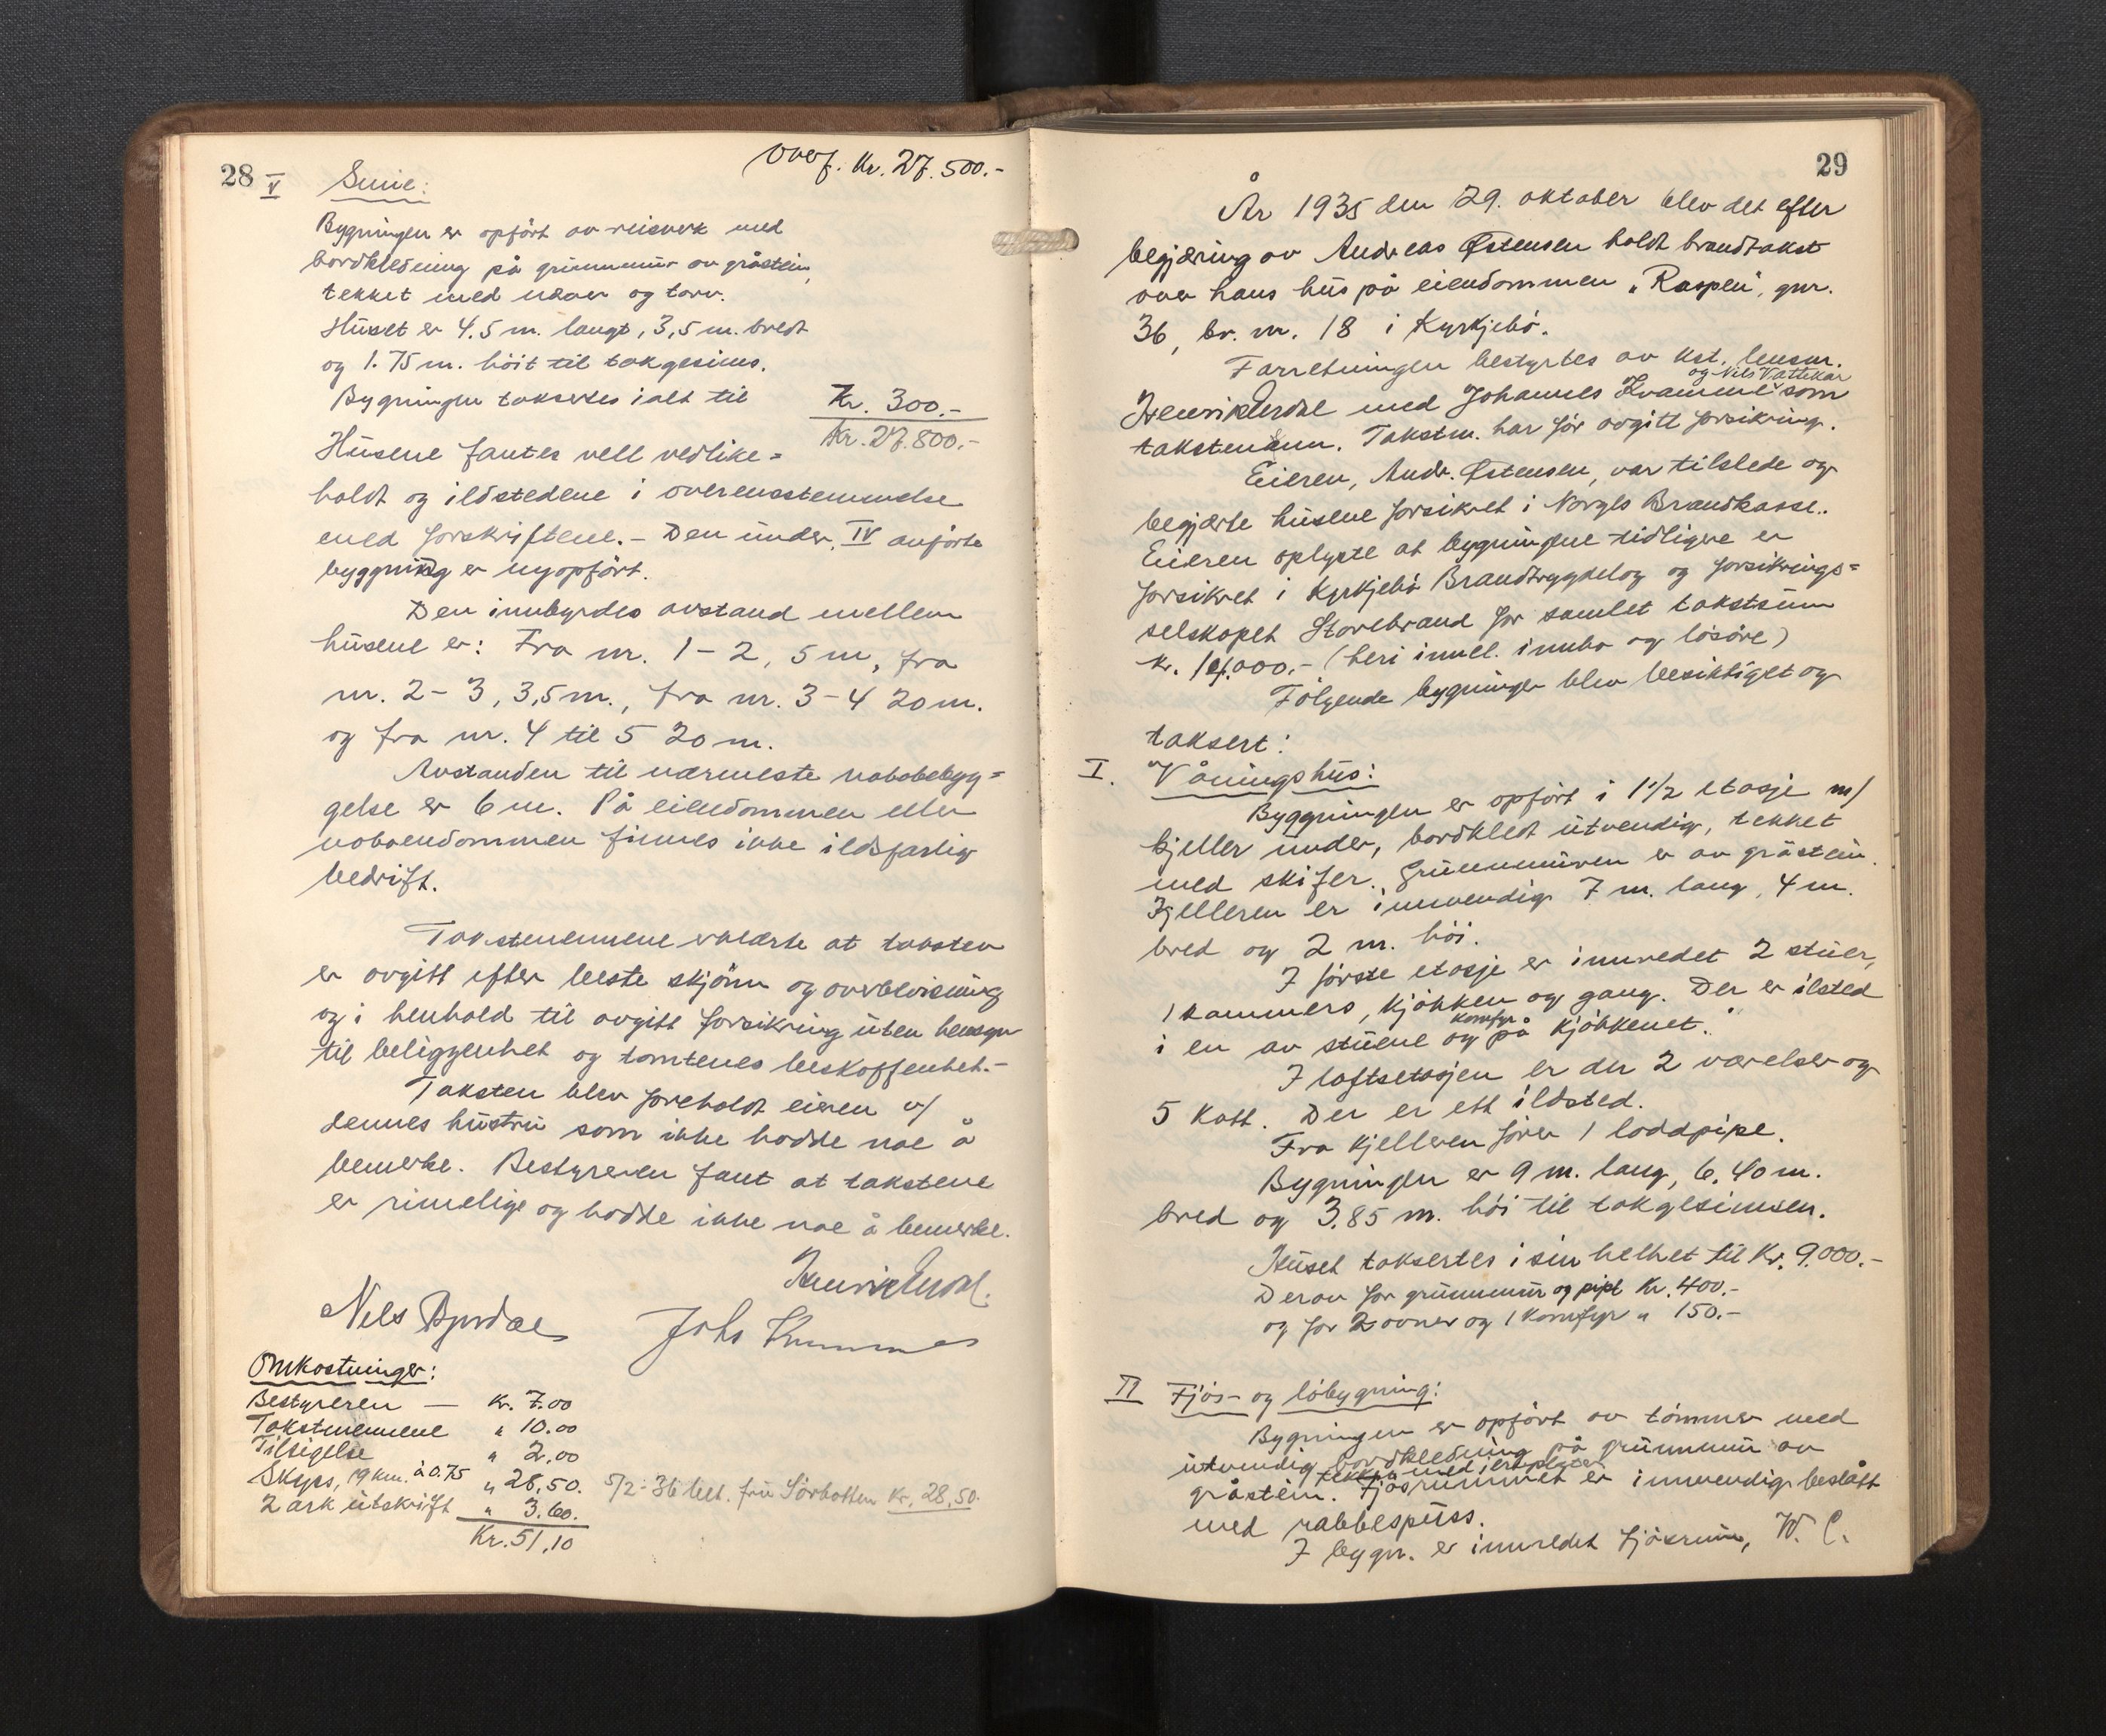 28
Overf. Kr. 27.500.-
V Smie:
Bygningen er opfört av reisverk med
bordkledning på grunnmur av gråstein,
tekket med never og torv.
Huset er 4.5 m. langt, 3,5 m. bredt
og 1.75 m. höit til takgesims.
Bygningen taksertes ialt til Kr. 300.-
Kr. 27.800.-
Husene fantes vell vedlike=
holdt og ildstedene i overensstemmelse
med forskriftene. - Den under IV anförte
byggning er nyopfört.
Den innbyrdes avstand mellem
husene er: Fra nr. 1-2, 5 m, fra
nr. 2-3, 3,5 m., fra nr. 3-4 20 m.
og fra nr. 4 til 5 20 m.
Avstanden til nærmeste nabobebyg=
gelse er 6 m. På eiendommen eller
naboendommen finnes ikke ildsfarlig
bedrift.
Takstmennene erklærte at taksten
er avgitt efter beste skjönn og overbevisning
og i henhold til avgitt forsikring uten hensyn
til beliggenhet og tomtenes beskaffenhet.-
Taksten blev foreholdt eieren v/
dennes hustru som ikke hadde noe å
bemerke. Bestyreren fant at takstene
er rimelige og hadde ikke noe å bemerke.
Henrik Erdal.
Nels Dyrdal Johs Kvamme
Omkostninger:
Bestyreren — Kr. 7.00
Takstmennene " 10.00
Tilsigelse " 2.00
Skyss, 19 km. à 0.75 " 28,50. 5/2-36 bet. fru Sörbotten Kr. 28,50.
2 ark utskrift " 3.60.
Kr. 51,10
29
År 1935 den 29. oktober blev det efter
begjæring av Andreas Østensen holdt brandtakst
over hans hus på eiendommen „Raspen", gnr.
36, br. nr. 18 i Kyrkjebö.
Forretningen bestyrtes av kst. lensm.
og Nils Vattekar
Henrik Erdal med Johannes Kvamme som
takstmenn. Takstm. har för avgitt forsikring.
Eieren, Andr. Østensen, var tilstede og
begjærte husene forsikret i Norges Brandkasse..
Eieren oplyste at bygningene tidligere er
forsikret i Kyrkjebö Brandtrygdelag og forsikrings=
selskapet Storebrand for samlet takstsum
kr. 14.000.- (heri innel. innbo og lösöre)
Fölgende bygninger blev besiktiget og
taksert:
I. Våningshus:
Byggningen er opfört i 1 1/2 etasje m/
kjeller under, bordkledt utvendig, tekket
med skifer. Grunnmuren er av gråstein.
Kjelleren er innvendig 7 m. lang, 4 m.
bred og 2 m. höi.
I förste etasje er innredet 2 stuer,
1 kammers, kjökken og gang. Der er ilsted
komfyr
i en av stuene og på kjökkenet.
I loftsetasjen er der 2 værelser og
5 kott. Der er ett ildsted.
Fra kjelleren förer 1 loddpipe.
Bygningen er 9 m. lang, 6,40 m.
bred og 3.85 m. höi til takgesimsen.
Huset taksertes i sin helhet til Kr. 9.000.-
Derav for grunnmur og pipe Kr. 400.-
og for 2 ovner og 1 komfyr " 150.-
II Fjös- og löbygning:
Bygningen er opfört av tömmer med
utvendig bordkledning på grunnmur av
tekket med jernplater
gråstein. Fjösrummet er innvendig beslått
med rabbespuss.
I bygn. er innredet fjösrum, W. C.